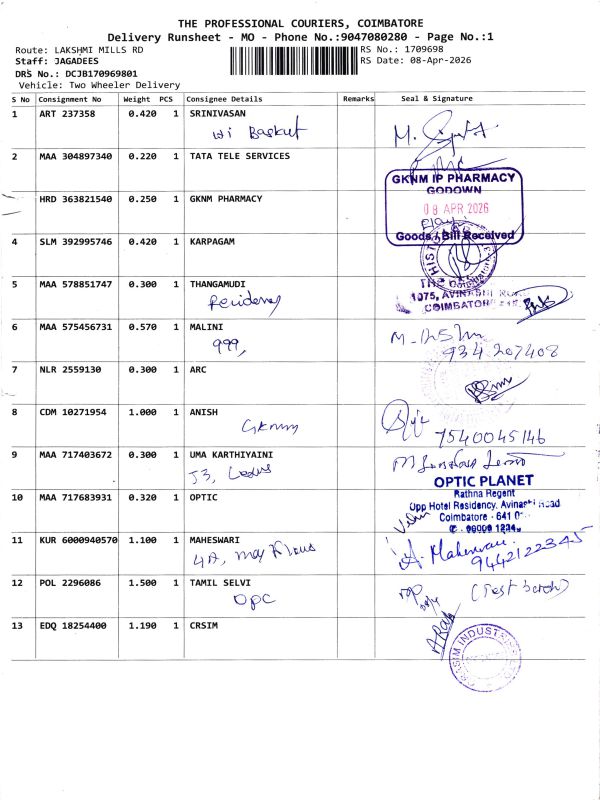 THE PROFESSIONAL COURIERS, COIMBATORE
Delivery Runsheet - MO - Phone No.:9047080280 - Page No.:1
Route: LAKSHMI MILLS RD
RS No.: 1709698
Staff: JAGADEES
RS Date: 08-Apr-2026
DRS No.: DCJB170969801
Vehicle: Two Wheeler Delivery
S No Consignment No Weight PCS Consignee Details Remarks Seal & Signature
1 ART 237358 0.420 1 SRINIVASAN
2 MAA 304897340 0.220 1 TATA TELE SERVICES
GKNM IP PHARMACY
GODOWN
HRD 363821540 0.250 1 GKNM PHARMACY
08 APR 2026
Goods / Bill Received
4 SLM 392995746 0.420 1 KARPAGAM
5 MAA 578851747 0.300 1 THANGAMUDI
1075, AVINASHI
COIMBATORE
6 MAA 575456731 0.570 1 MALINI
999,
934 207408
7 NLR 2559130 0.300 1 ARC
8 CDM 10271954 1.000 1 ANISH
7540045146
9 MAA 717403672 0.300 1 UMA KARTHIYAINI
J3,
OPTIC PLANET
Rathna Regent
10 MAA 717683931 0.320 1 OPTIC
Opp Hotel Residency, Avinashi Road
Coimbatore - 641 0
11 KUR 6000940570 1.100 1 MAHESWARI
4A,
A. Maheswari
9442122345
12 POL 2296086 1.500 1 TAMIL SELVI
OPC
13 EDQ 18254400 1.190 1 CRSIM